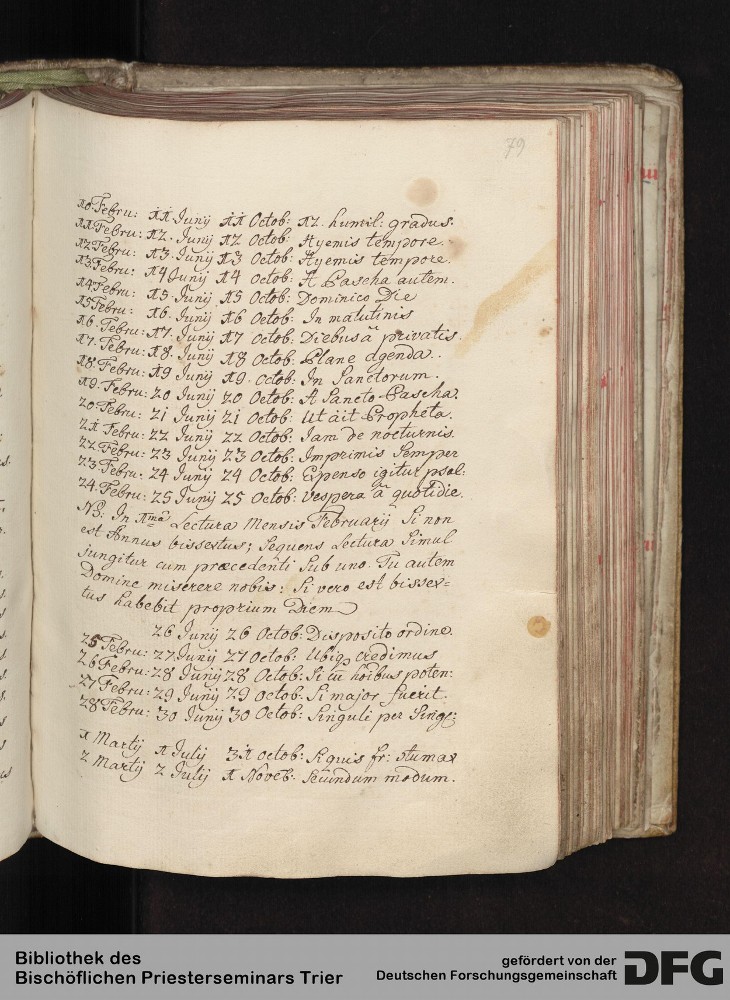 79
10. Febru: 11 Junij 11 Octob: 12. humil: gradus.
11 Febru: 12. Junij 12 Octob: Hyemis tempore.
12 Febru: 13. Junij 13 Octob: Hyemis tempore.
13. Febru: 14 Junij 14 Octob: A Pascha autem.
14 Febru: 15. Junij 15 Octob: Dominico Die
15 Febru: 16. Junij 16 Octob: In matutinis
16. Febru: 17. Junij 17 Octob: Diebus ä privatis.
17. Febru: 18. Junij 18 Octob: Plane agenda.
18. Febru: 19 Junij 19. Octob: In Sanctorum.
19. Febru: 20 Junij 20 Octob: A Sancto Pascha.
20. Febru: 21 Junij 21 Octob: Ut äit Propheta.
21 Febru: 22 Junij 22 Octob: Iam de nocturnis.
22 Febru: 23 Junij 23 Octob: Imprimis Semper
23. Febru: 24 Junij 24 Octob: Expenso igitur psal:
24. Febru: 25 Junij 25 Octob: Vespera ä quotidie.
NB: In 1ma Lectura Mensis Februarij Si non
est Annus bissextus; Sequens Lectura Simul
jungitur cum præcedenti Sub uno. Tu autem
Domine miserere nobis: Si vero est bissex=
tus habebit proprium Diem
26 Junij 26 Octob: Disposito ordine.
25 Febru: 27. Junij 27 Octob: Ubiq credimus
26 Febru: 28 Junij 28 Octob: Si cu hoibus poten:
27 Febru: 29 Junij 29 Octob: Si major fuerit.
28 Febru: 30 Junij 30 Octob: Singuli per Sing:
1 Martij 1 Julij 31 octob: Siquis fr: stumax
2 Martij 2 Julij 1 Noveb: Secundum modum.
Bibliothek des
Bischöflichen Priesterseminars Trier
gefördert von der
Deutschen Forschungsgemeinschaft
DFG